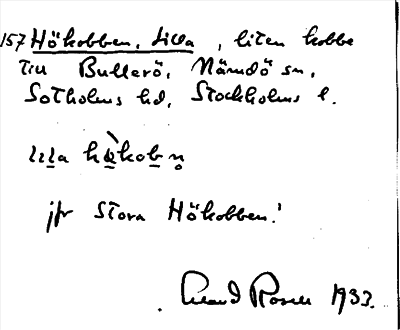 157 Hökobben, Lilla, liten kobbe
till Bullerö, Nämdö sn,
Sotholms hd, Stockholms l.
lilla
jfr Stora Hökobben!
1933.